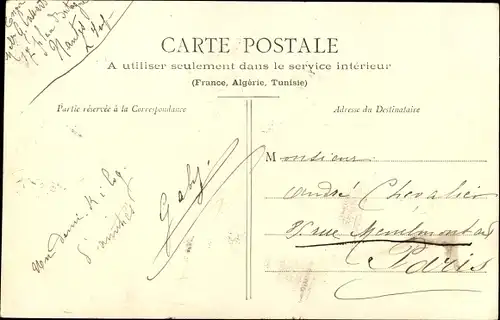 Nantes
CARTE POSTALE
A utiliser seulement dans le service intérieur
(France, Algérie, Tunisie)
Partie réservée à la Correspondance
Adresse du Destinataire
Un demi-kilog
d'amitiés
Gaby.
Monsieur
André Chevalier
rue Menilmontant
Paris